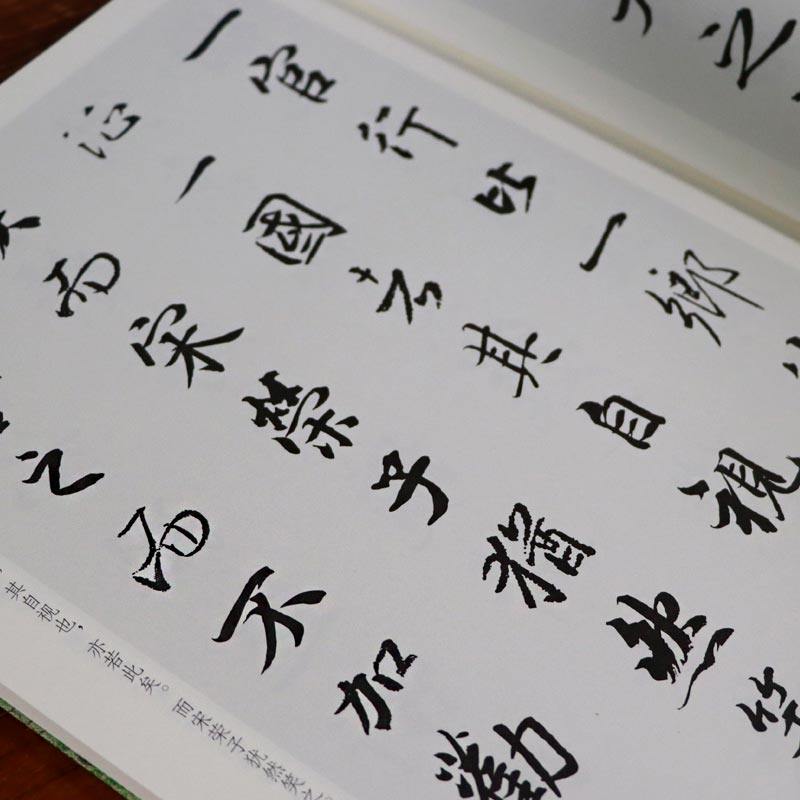 之
一官行比一鄉
一國者其自視
而宋榮子猶然笑
之而不加勸
其自视也，亦若此矣。而宋荣子犹然笑之。